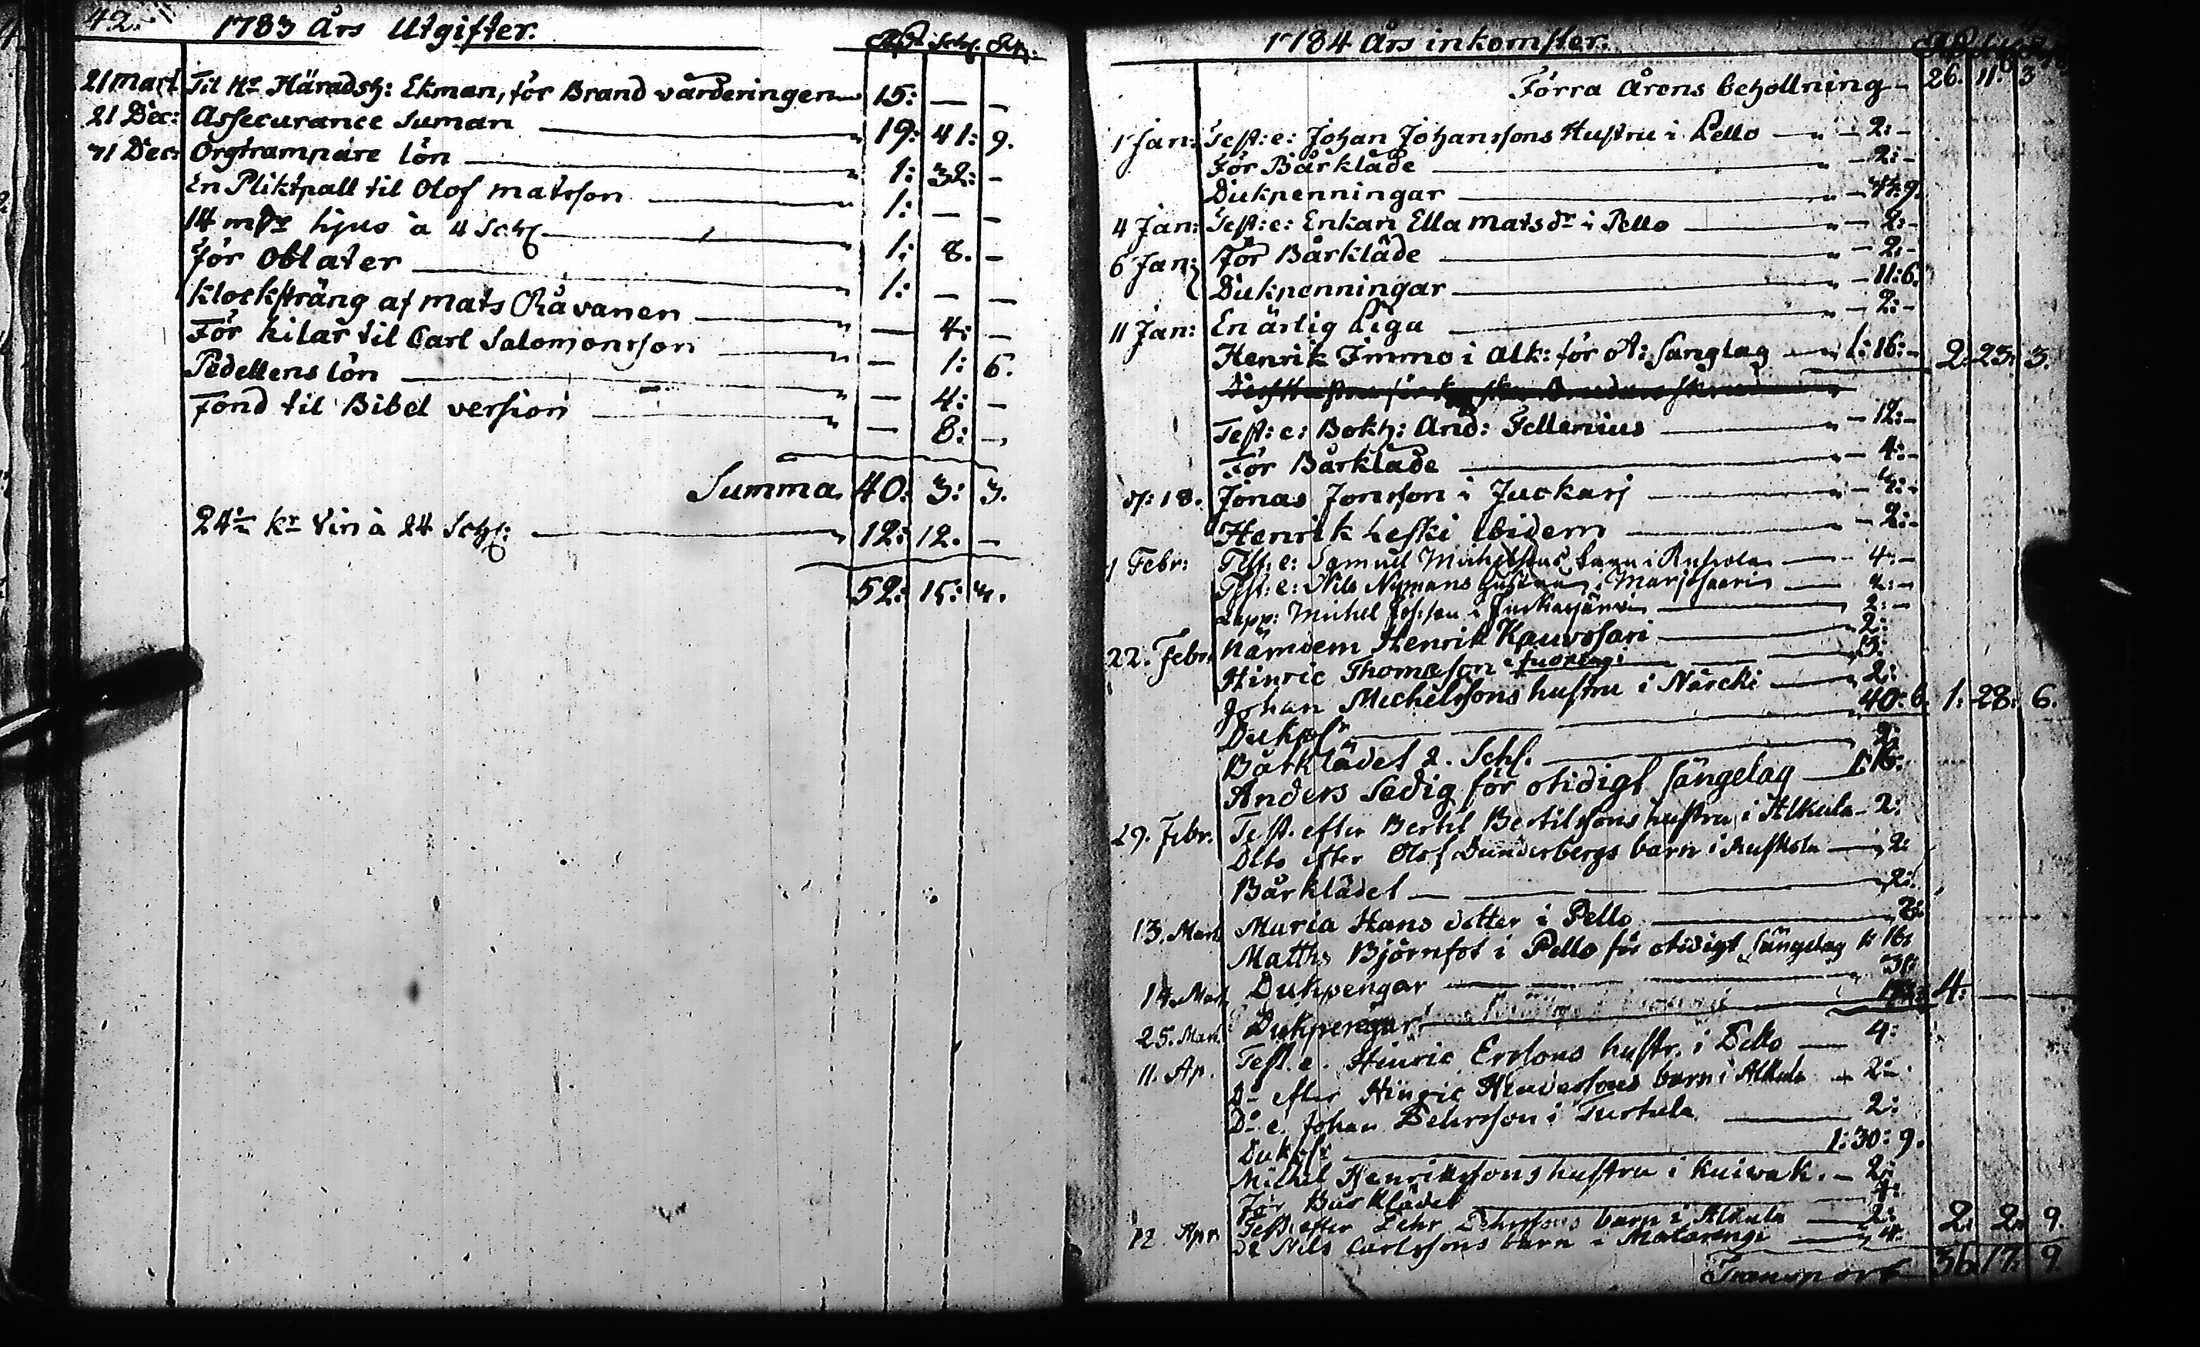 42.
1783 Års Utgifter.
21 Mart Til Hr Häradsh: Ekman, för Brand värderingen 15: — —
21 Dec: Assecurance Suman 19: 41: 9.
31 Dec: Orgtrampare lön 1: 32: —
En Pliktpall til Olof Matsson 1: — —
14 ljus à 4 Sch 1: 8. —
För Oblater 1: — —
Klocksträng af Mats Råvanen — 4: —
För kilar til Carl Salomonsson — 1: 6.
Pedellens lön — 4: —
Fond til Bibel version — 8: —
Summa 40: 3: 3.
24½ kr Vin à 24 Sch: 12: 12. —
52: 15: 3.
1784 Års inkomster.
Förra Årens behollning 26. 11: 3
1 Jan: Test: e: Johan Johanssons Hustru i Pello — 2: —
För Bårkläde — 2: —
Dukpenningar
4 Jan: Test: e: Enkan Ella Matsdr i Pello — 2: —
6 Jan: För Bårkläde — 2: —
Dukpenningar — 11: 6.
11 Jan: En ärlig Piga — 2: —
Henrik Immo i Alk: för ot: sänglag 1: 16: — 2: 23: 3.
Test: e: Bokh: And: Fellenius — 12: —
För Bårkläde — 4: —
d: 18. Jonas Jonsson i Juckasj
Henrik Leski ibidem — 2: —
1 Febr: Test: e: Samuel Michelssons barn i — 4: —
Test: e: Nils Nymans hustru i Marjosaari — 2: —
Lapp: Michel i Juckasjärvi — 2: —
22. Febr. Nämdem Henrik Kauvosari 2:
Hinric Thomasson i
Johan Michelssons hustru i Närcki 2:
Dukp 40: 6. 1: 28: 6.
Bårklädet 2. Sch.
Anders Sedig för otidigt sängelag 1: 16:
29. Febr. Test. efter Bertil Bertilssons hustru i Alkula 2:
Dito efter Olof Dunderbergs barn i Ruskola 2:
Bårklädet 2:
13. Mart Maria Hans dotter i Pello
Matths Björnfot i Pello för otidigt sängelag 1: 16:
14. Mart Dukpengar 4:
25. Mart Dukpengar
11. Ap. Test. e. Hinric Ersson hustr. i Pello 4:
Do efter Hinric Hindersons barn i Alkula 2:
Do e. Johan Pehrsson i Turtula 2:
Dukp: 1: 30: 9.
Michel Henrikssons hustru i kuivak. 2:
För Bårklädet
12 Apr. Test. efter Pehr Pehrssons barn i Alkula 2: 2. 2. 9.
do Nils Carlssons barn i Matarengi 4:
Transport 36 17: 9